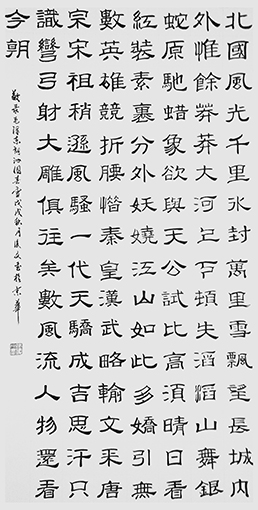 北國風光千里氷封萬里雪飄望長城内
外惟餘莽莽大河上下頓失滔滔山舞銀
蛇原馳蜡象欲與天公試比高須晴日看
紅裝素裹分外妖嬈江山如此多嬌引無
數英雄競折腰惜秦皇漢武略輸文采唐
宗宋祖稍遜風騷一代天驕成吉思汗只
識彎弓射大雕俱往矣數風流人物還看
今朝
敬录毛澤東詞沁園春雪戊戌秋月書於京華